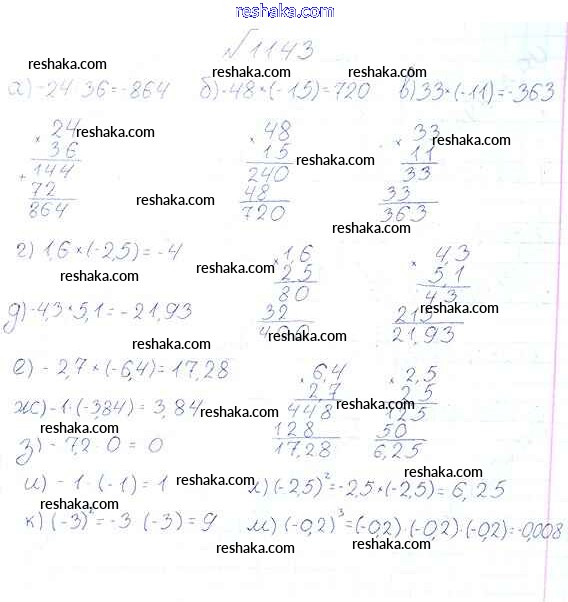 reshaka.com
№1143
reshaka.com reshaka.com reshaka.com
а) -24 · 36 = -864 б) -48 × (-15) = 720 в) 33 × (-11) = -363
× 24 × 48 × 33
36 reshaka.com 15 reshaka.com 11
+ 144 240 33
72 reshaka.com 48 33
864 720 363
reshaka.com
г) 1,6 × (-2,5) = -4 × 1,6 × 4,3
reshaka.com reshaka.com 2,5 5,1
80 43
д) -4,3 × 5,1 = -21,93 32 215 reshaka.com
reshaka.com 400 21,93
е) -2,7 × (-6,4) = 17,28 × 6,4 × 2,5
2,7 2,5
ж) -1 · (-3,84) = 3,84 reshaka.com 448 reshaka.com 125
128 50
з) -7,2 · 0 = 0 reshaka.com 17,28 6,25
reshaka.com
и) -1 · (-1) = 1 reshaka.com л) (-2,5)² = -2,5 × (-2,5) = 6,25
reshaka.com
к) (-3)² = -3 · (-3) = 9 м) (-0,2)³ = (-0,2) · (-0,2) · (-0,2) = -0,008
reshaka.com reshaka.com